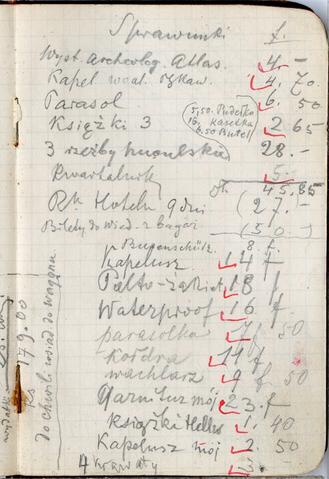 Sprawunki f.
Wyst. Archeolog. Atlas. 4. -
Kapel 4. 70
Parasol 6. 50
Książki 3 2 65
5.50. Pudełko
16. Kasetka
6.50 Butel
3 rzeźby huculskie 28. -
Kwartalnik 5 -
45.85
Rk Hotelu 9 dni (27. -)
Bilety do Wied. z bagaż (50)
8 f.
Kapelusz 14 f
Palto-żakiet 18 f
Waterproof 16 f
parasolka 7 f. 50
kołdra 14 f
wachlarz 9 f 50
Garnitur mój 23. f
Książki Hellos 1. 40
Kapelusz mój 2. 50
4 krawaty 3. -
179.00
do chwili wsiad do wagonu